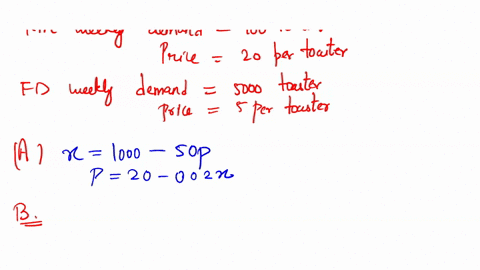 weekly demand = 100
Price = 20 per toaster
FD weekly demand = 5000 toaster
Price = 5 per toaster
(A) x = 1000 - 50p
P = 20 - 002x
B.